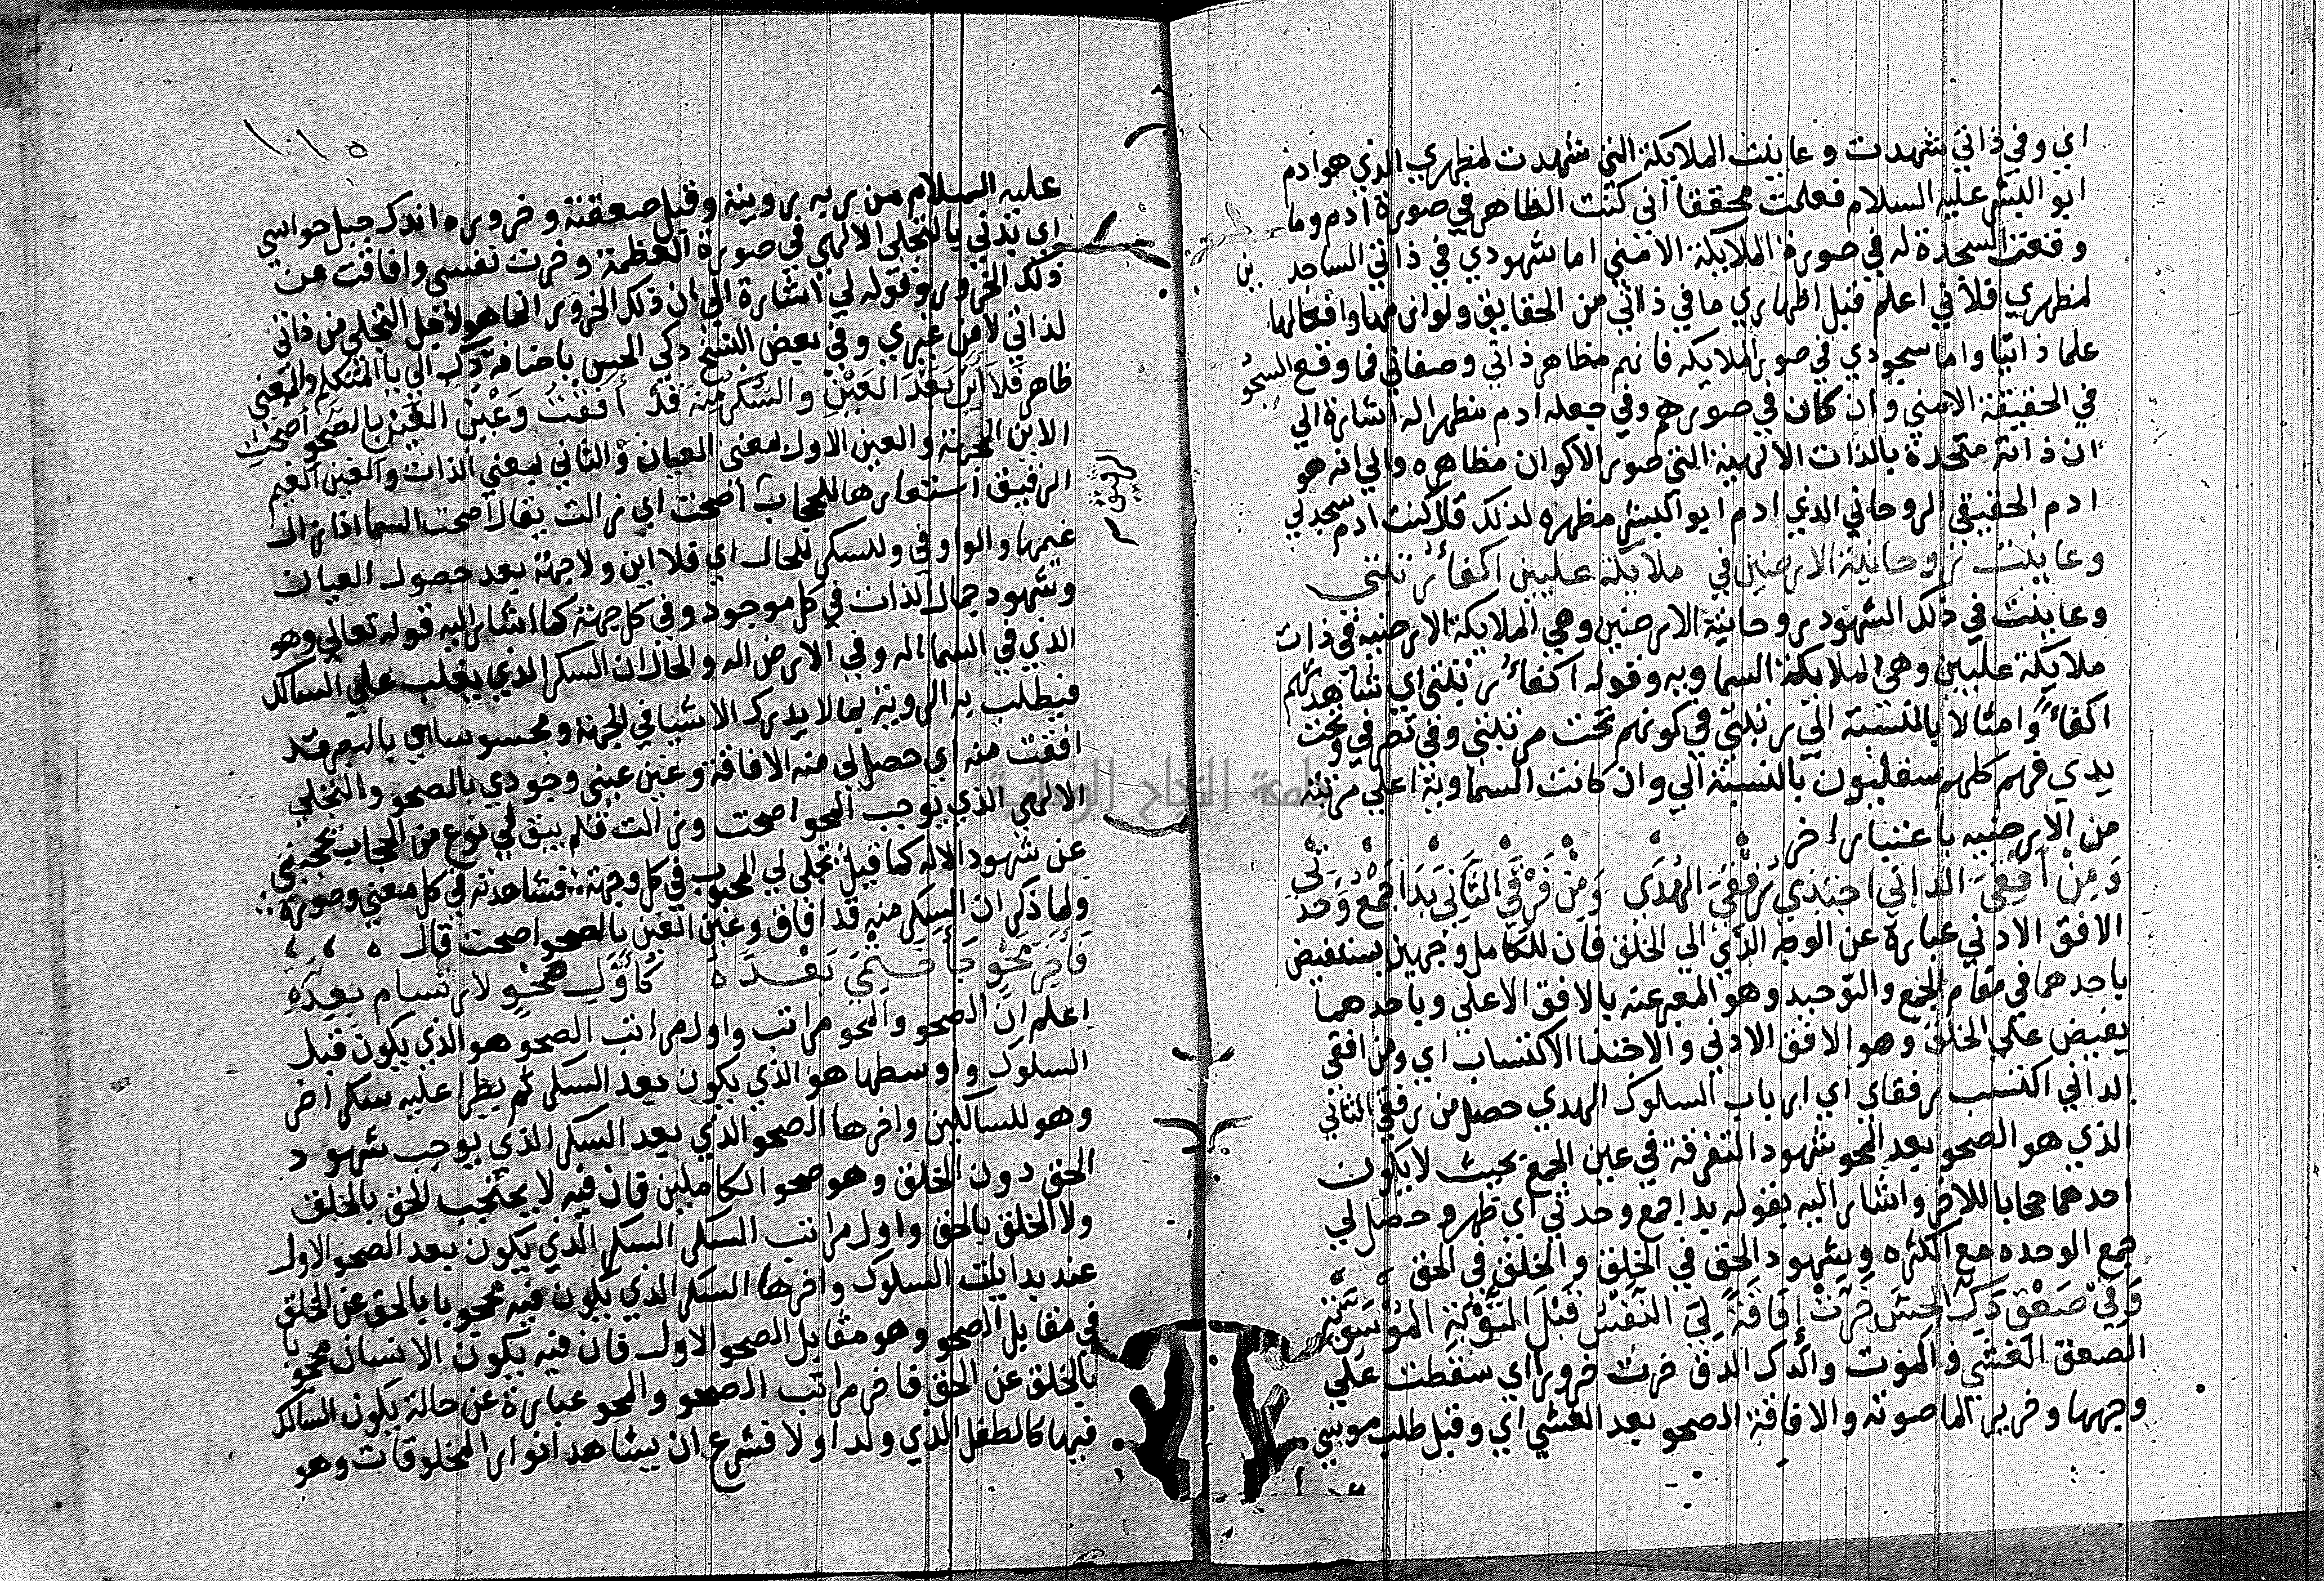 اي وفي ذاتي شهدت وعاينت الملايكة التي شهدت لمظهري الذي هو ادم
ابو البشر عليه السلام فعلمت محققا اني كنت الظاهر في صورة ادم وما
وقعت السجدة له في صورة الملايكة الا مني اما شهودي في ذاتي الساجد ين
لمظهري فلاني اعلم قبل اظهاري ما في ذاتي من الحقايق ولوازمها وافعالها
علما ذاتيا واما سجودي في صور الملايكه فانهم مظاهر ذاتي وصفاتي فما وقع السجو
في الحقيقة الا مني وان كان في صورهم وفي جعله ادم مظهرا له اشارة الي
ان ذاته متحدة بالذات الالهية التي صور الاكوان مظاهره والي انه هو
ادم الحقيقي الروحاني الذي ادم ابو البشر مظهره لذلك قال كنت ادم سجد لي
وعاينت روحانية الارضين في ملايكة عليين اكفاء رتبتي
وعاينت في ذلك الشهود روحانية الارضين وهي الملايكة الارضيه في ذات
ملايكة عليين وهي الملايكة السماويه وقوله اكفاء رتبتي اي شاهدتهم
اكفاءً وامثالا بالنسبة الي رتبتي في كونهم تحت مرتبتي وفي تصرفي وتحت
يدي فهم كلهم سفليون بالنسبة الي وان كانت السماوية اعلي مرتبة
من الارضيه باعتبار اخر
وَمِنْ اُفقِيَ الداني اجتدي رفقيَ الهُدَي وَمِنْ فَرْقِيَ الثاني بَدَا جمْعُ وَحْدَتِي
الافق الادني عبارة عن الوجه الذي الي الخلق فان للكامل وجهين يستفيض
باحدهما في مقام الجمع والتوحيد وهو المعبر عنه بالافق الاعلي وباحدهما
يفيض علي الخلق وهو الافق الادني والاجتدا الاكتساب اي ومن افقي
الداني اكتسب رفقاي اي ارباب السلوك الهدي حصل من فرقي الثاني
الذي هو الصحو بعد المحو شهود التفرقة في عين الجمع بحيث لا يكون
احدهما حجابا للاخر واشار اليه بقوله بدا جمع وحدتي اي ظهر وحصل لي
جمع الوحده مع الكثره وشهود الحق في الخلق والخلق في الحق
وَفِي صَعْقِ دَكِّ الحِسّ خَرَّتْ إفَاقَةً لِيَ النَّفْسُ قَبْلَ التَّوْبَةِ المُوْسَوِيَّةِ
الصعق الغشي والموت والدك الدق خرت خرورا اي سقطت علي
وجهها وخرير الما صوته والافاقة الصحو بعد الغشي اي وقبل طلب موسي
١٠١٥
عليه السلام من ربه بروية وقبل صعقته وخروره اندك جبل حواسي
اي بدني بالتجلي الالهي في صورة العظمة وخرت نفسي وافاقت عن
ذلك الخرور وقوله لي اشارة الي ان ذلك الخرور انما هو لاجل التجلي من ذاتي
لذاتي لا من غيري وفي بعض النسخ دكي الحس باضافة دك الي يا المتكلم والمعني
ظاهر فَلَا اَيْنَ بَعْدَ العَيْنِ والسُّكرُ مِنهُ قَدْ أَفَقْتُ وَغَيْنُ الغَيْنِ بالصَّحْوِ أَصْحَتِ
الاين الجهة والعين الاول معنى العيان والثاني بمعني الذات والغين الغيم
الرقيق استعارها للحجاب أصحت اي زالت يقال اصحت السما اذا زال
الرقيق
غيمها والواو في والسكر للحال اي فلا اين ولا جهة بعد حصول العيان
وشهود جمال الذات في كل موجود وفي كل جهة كما اشار اليه قوله تعالي وهو
الذي في السما اله وفي الارض اله والحال ان السكر الذي يغلب علي السالك
فيطلب به الروية بما لا يدرك الاشيا في الجهة ومحسوسا هي بالبصر قد
افقت منه اي حصل لي منه الافاقة وغين عيني وجودي بالصحو والتجلي
الالهي الذي يوجب المحو اصحت وزالت فلم يبق لي نوع من الحجاب تحجبني
عن شهود الاله كما قيل تجلي لي المحبوب في كل وجهة فشاهدته في كل معني وصورة
ولما ذكر ان السكر منه قد افاق وغين العين بالصحو اصحت قال
فَآخِرُ مَحْوٍ جَأَ خَتْمِيَ بَعْدَهُ كأَوَّلِ صَحْوٍ لارْتسام بعدّةِ
اعلم ان الصحو والمحو مراتب واول مراتب الصحو هو الذي يكون قبل
السلوك واوسطها هو الذي يكون بعد السكر ثم يطرا عليه سكر اخر
وهو للسالكين واخرها الصحو الذي بعد السكر الذي يوجب شهود
الحق دون الخلق وهو صحو الكاملين فان فيه لا يحتجب الحق بالخلق
ولا الخلق بالحق واول مراتب السكر السكر الذي يكون بعد الصحو الاول
عند بدايت السلوك واخرها السكر الذي يكون فيه محجوبا بالحق عن الخلق
في مقابل الصحو وهو مقابل الصحو الاول فان فيه يكون الانسان محجوبا
بالخلق عن الحق فاخر مراتب الصحو والمحو عبارة عن حالة يكون السالك
فيها كالطفل الذي ولد اولا فشرع ان يشاهد انوار المخلوقات وهو